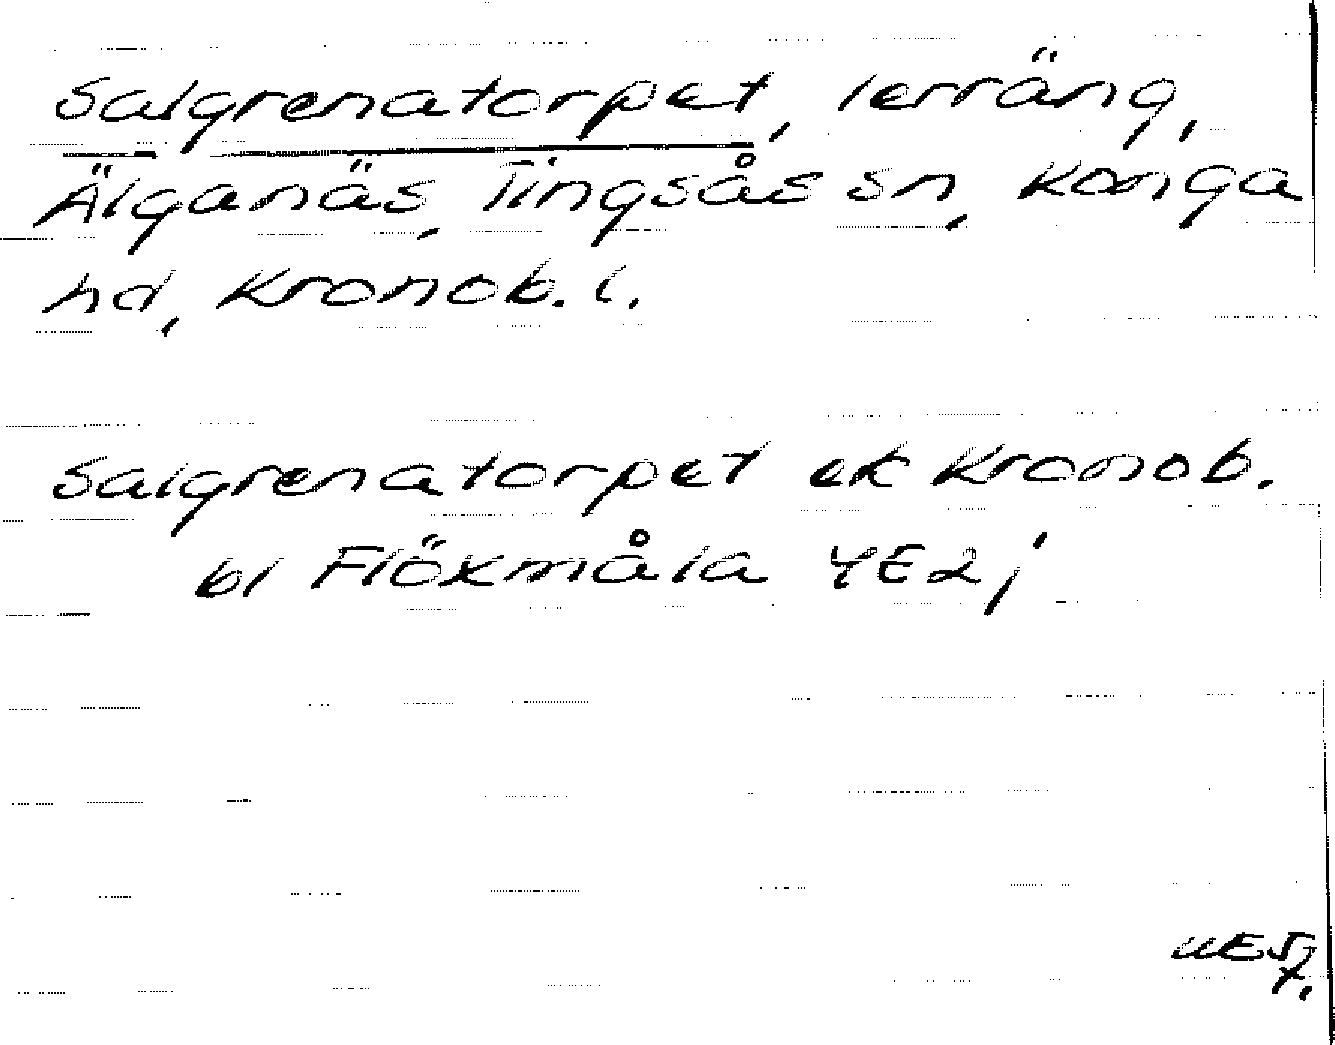 Salgrenatorpet, terräng,
Älganäs, Tingsås sn, Konga
hd, Kronob. l.
Salgrenatorpet ek Kronob.
bl Flökmåla 4E2j